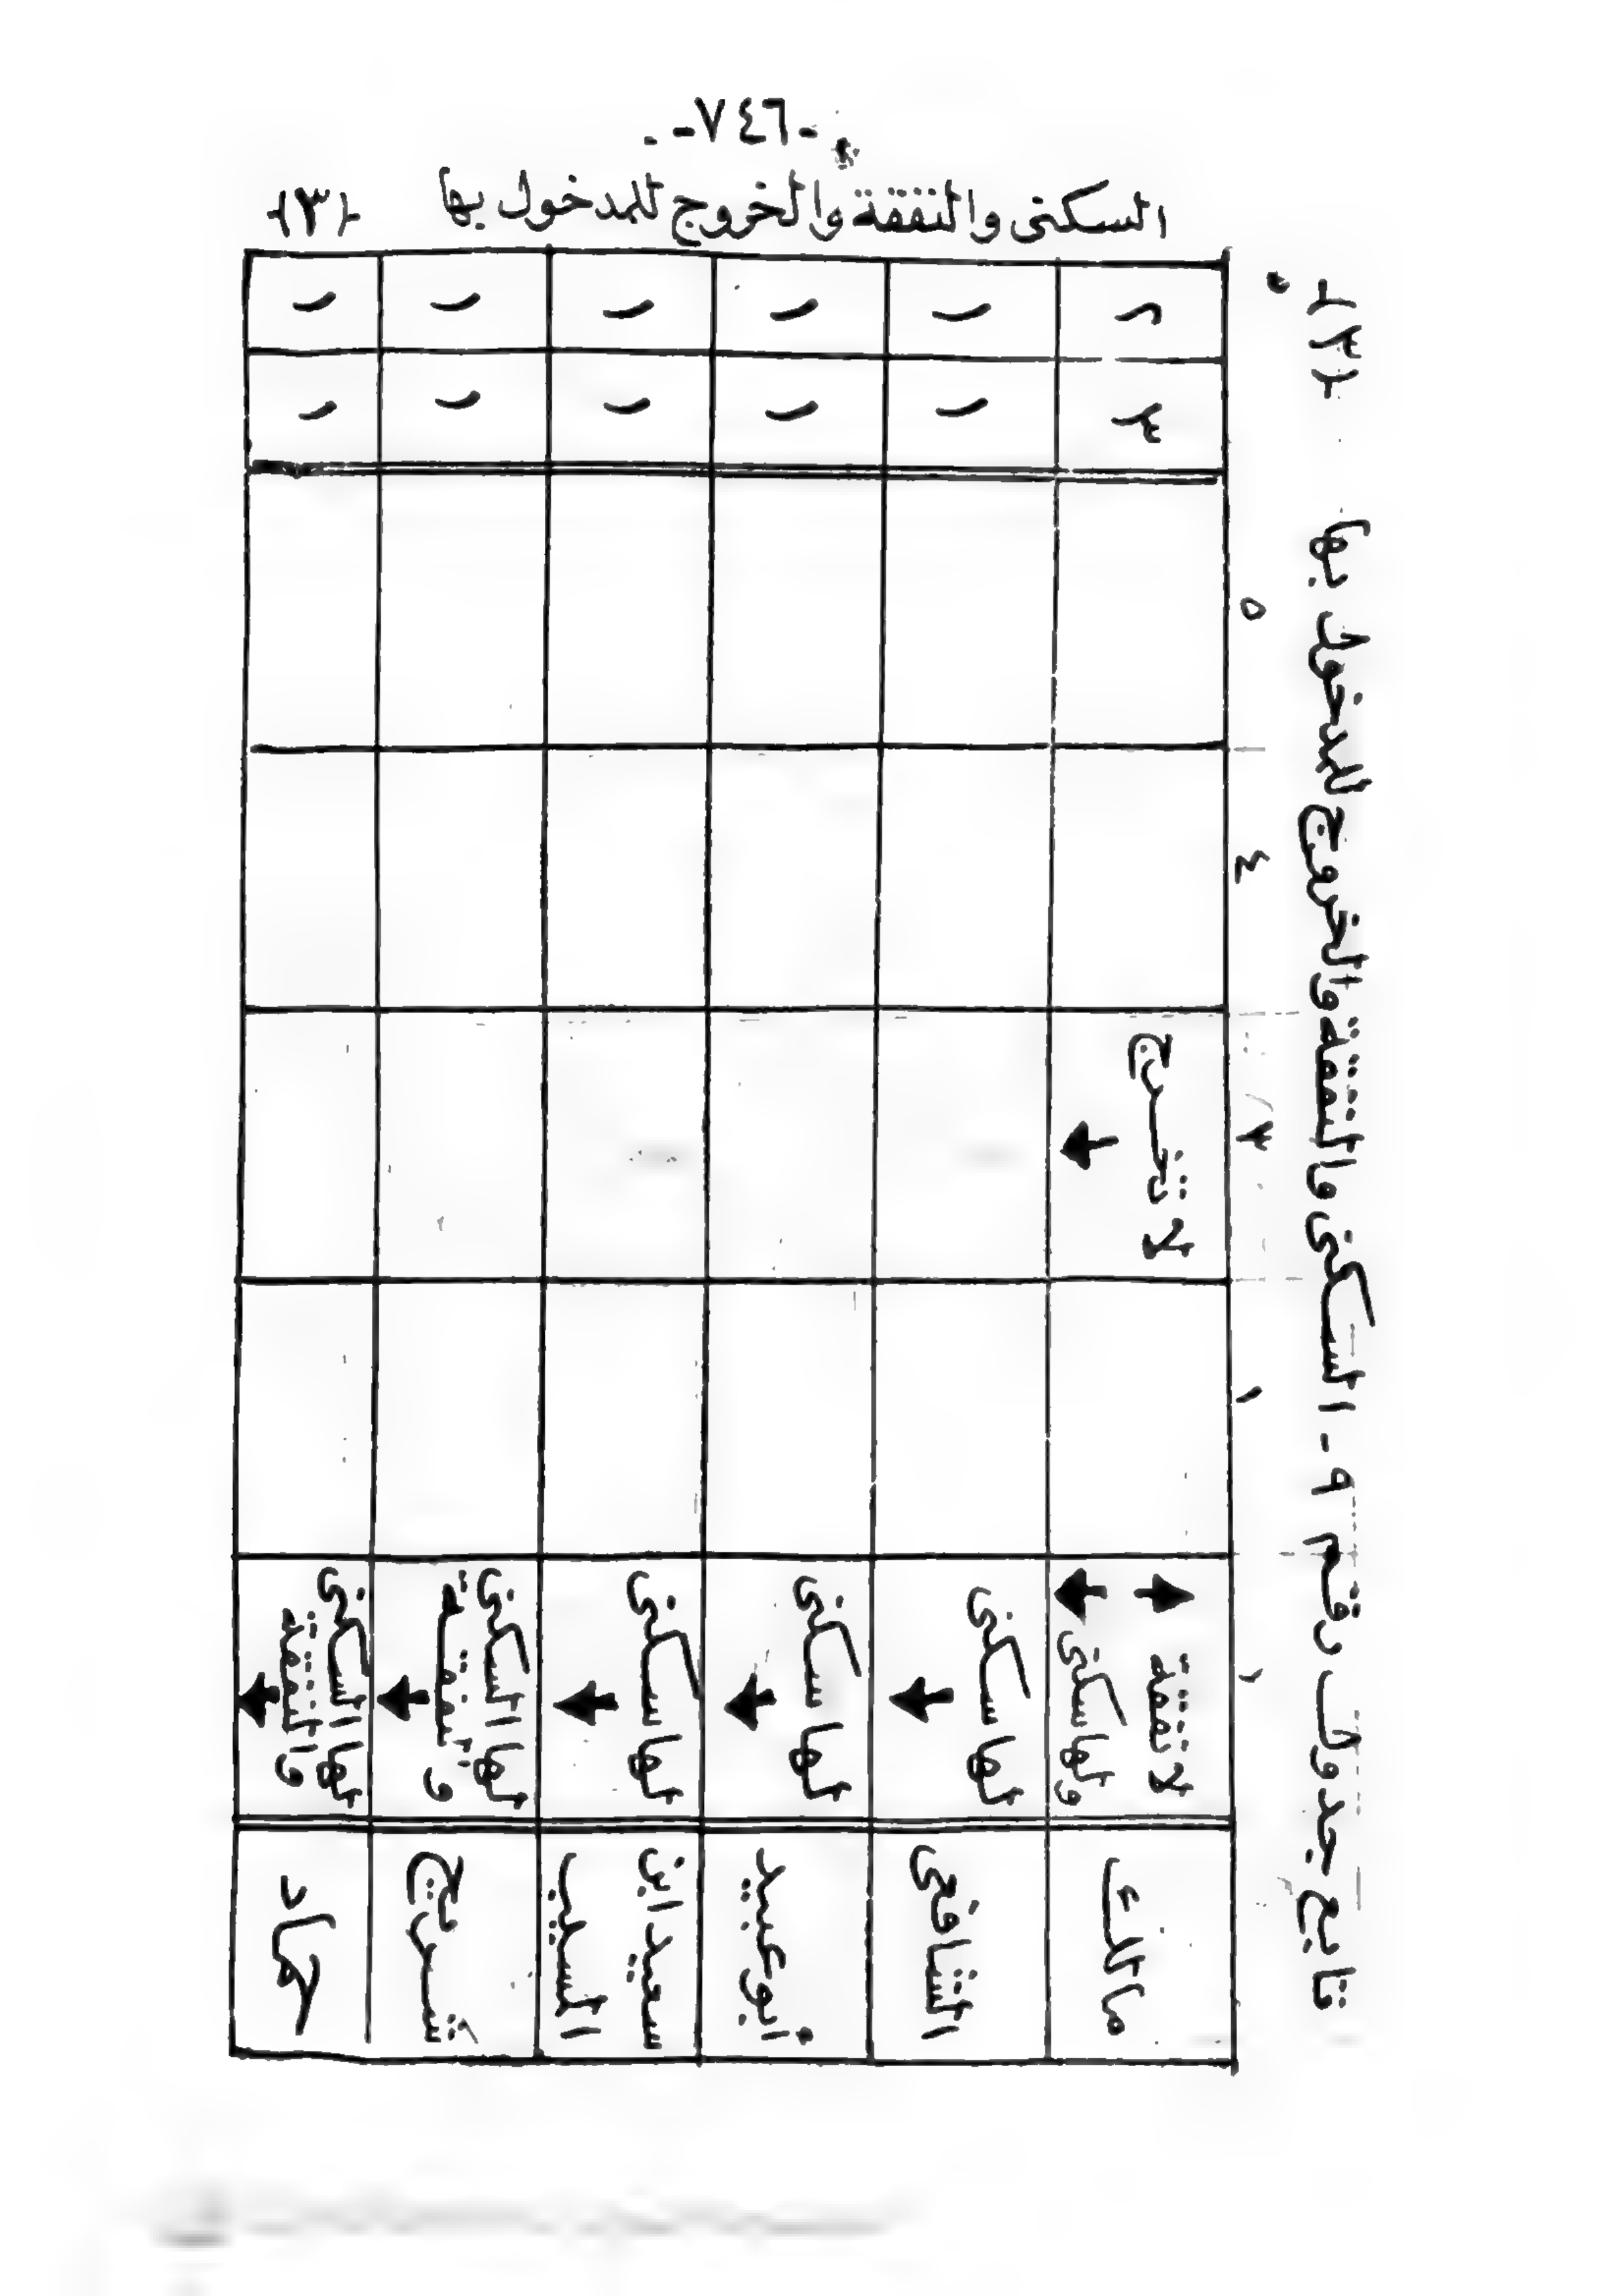 -٧٤٦-
السكنى والنفقة والخروج للمدخول بها {٣}
تابع جدول رقم ٩ - السكنى والنفقة والخروج للمدخول بها {٣}
١ ٣ ٤ ٥
مالك لا نفقة ولها سكنى لا تخرج ٣ ٢
الشافعى لها سكنى ١ ١
أبو عبيد لها سكنى ١ ١
سعيد ابن المسيب لها سكنى ١ ١
شريح لها السكنى والنفقة ١ ١
حماد لها السكنى والنفقة ١ ١